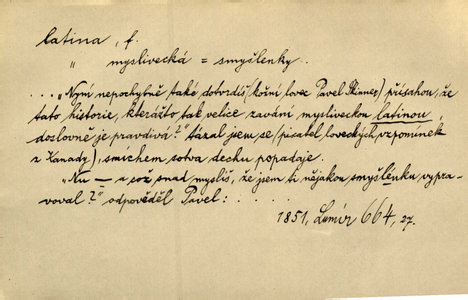 latina, f.
" myslivecká = smyšlenky.
... „Nyní nepochybně také dotvrdíš (kožní lovec Pavel Skinner) přísahou, že
tato historie, kterážto tak velice zavání mysliveckou latinou,
doslovně je pravdivá?" tázal jsem se (pisatel loveckých vzpomínek
z Kanady), smíchem sotva dechu popadaje.
„Nu — a což snad myslíš, že jsem ti nějakou smyšlenku vypra-
voval?" odpověděl Pavel: . . . .
1851, Lumír 664, 27.